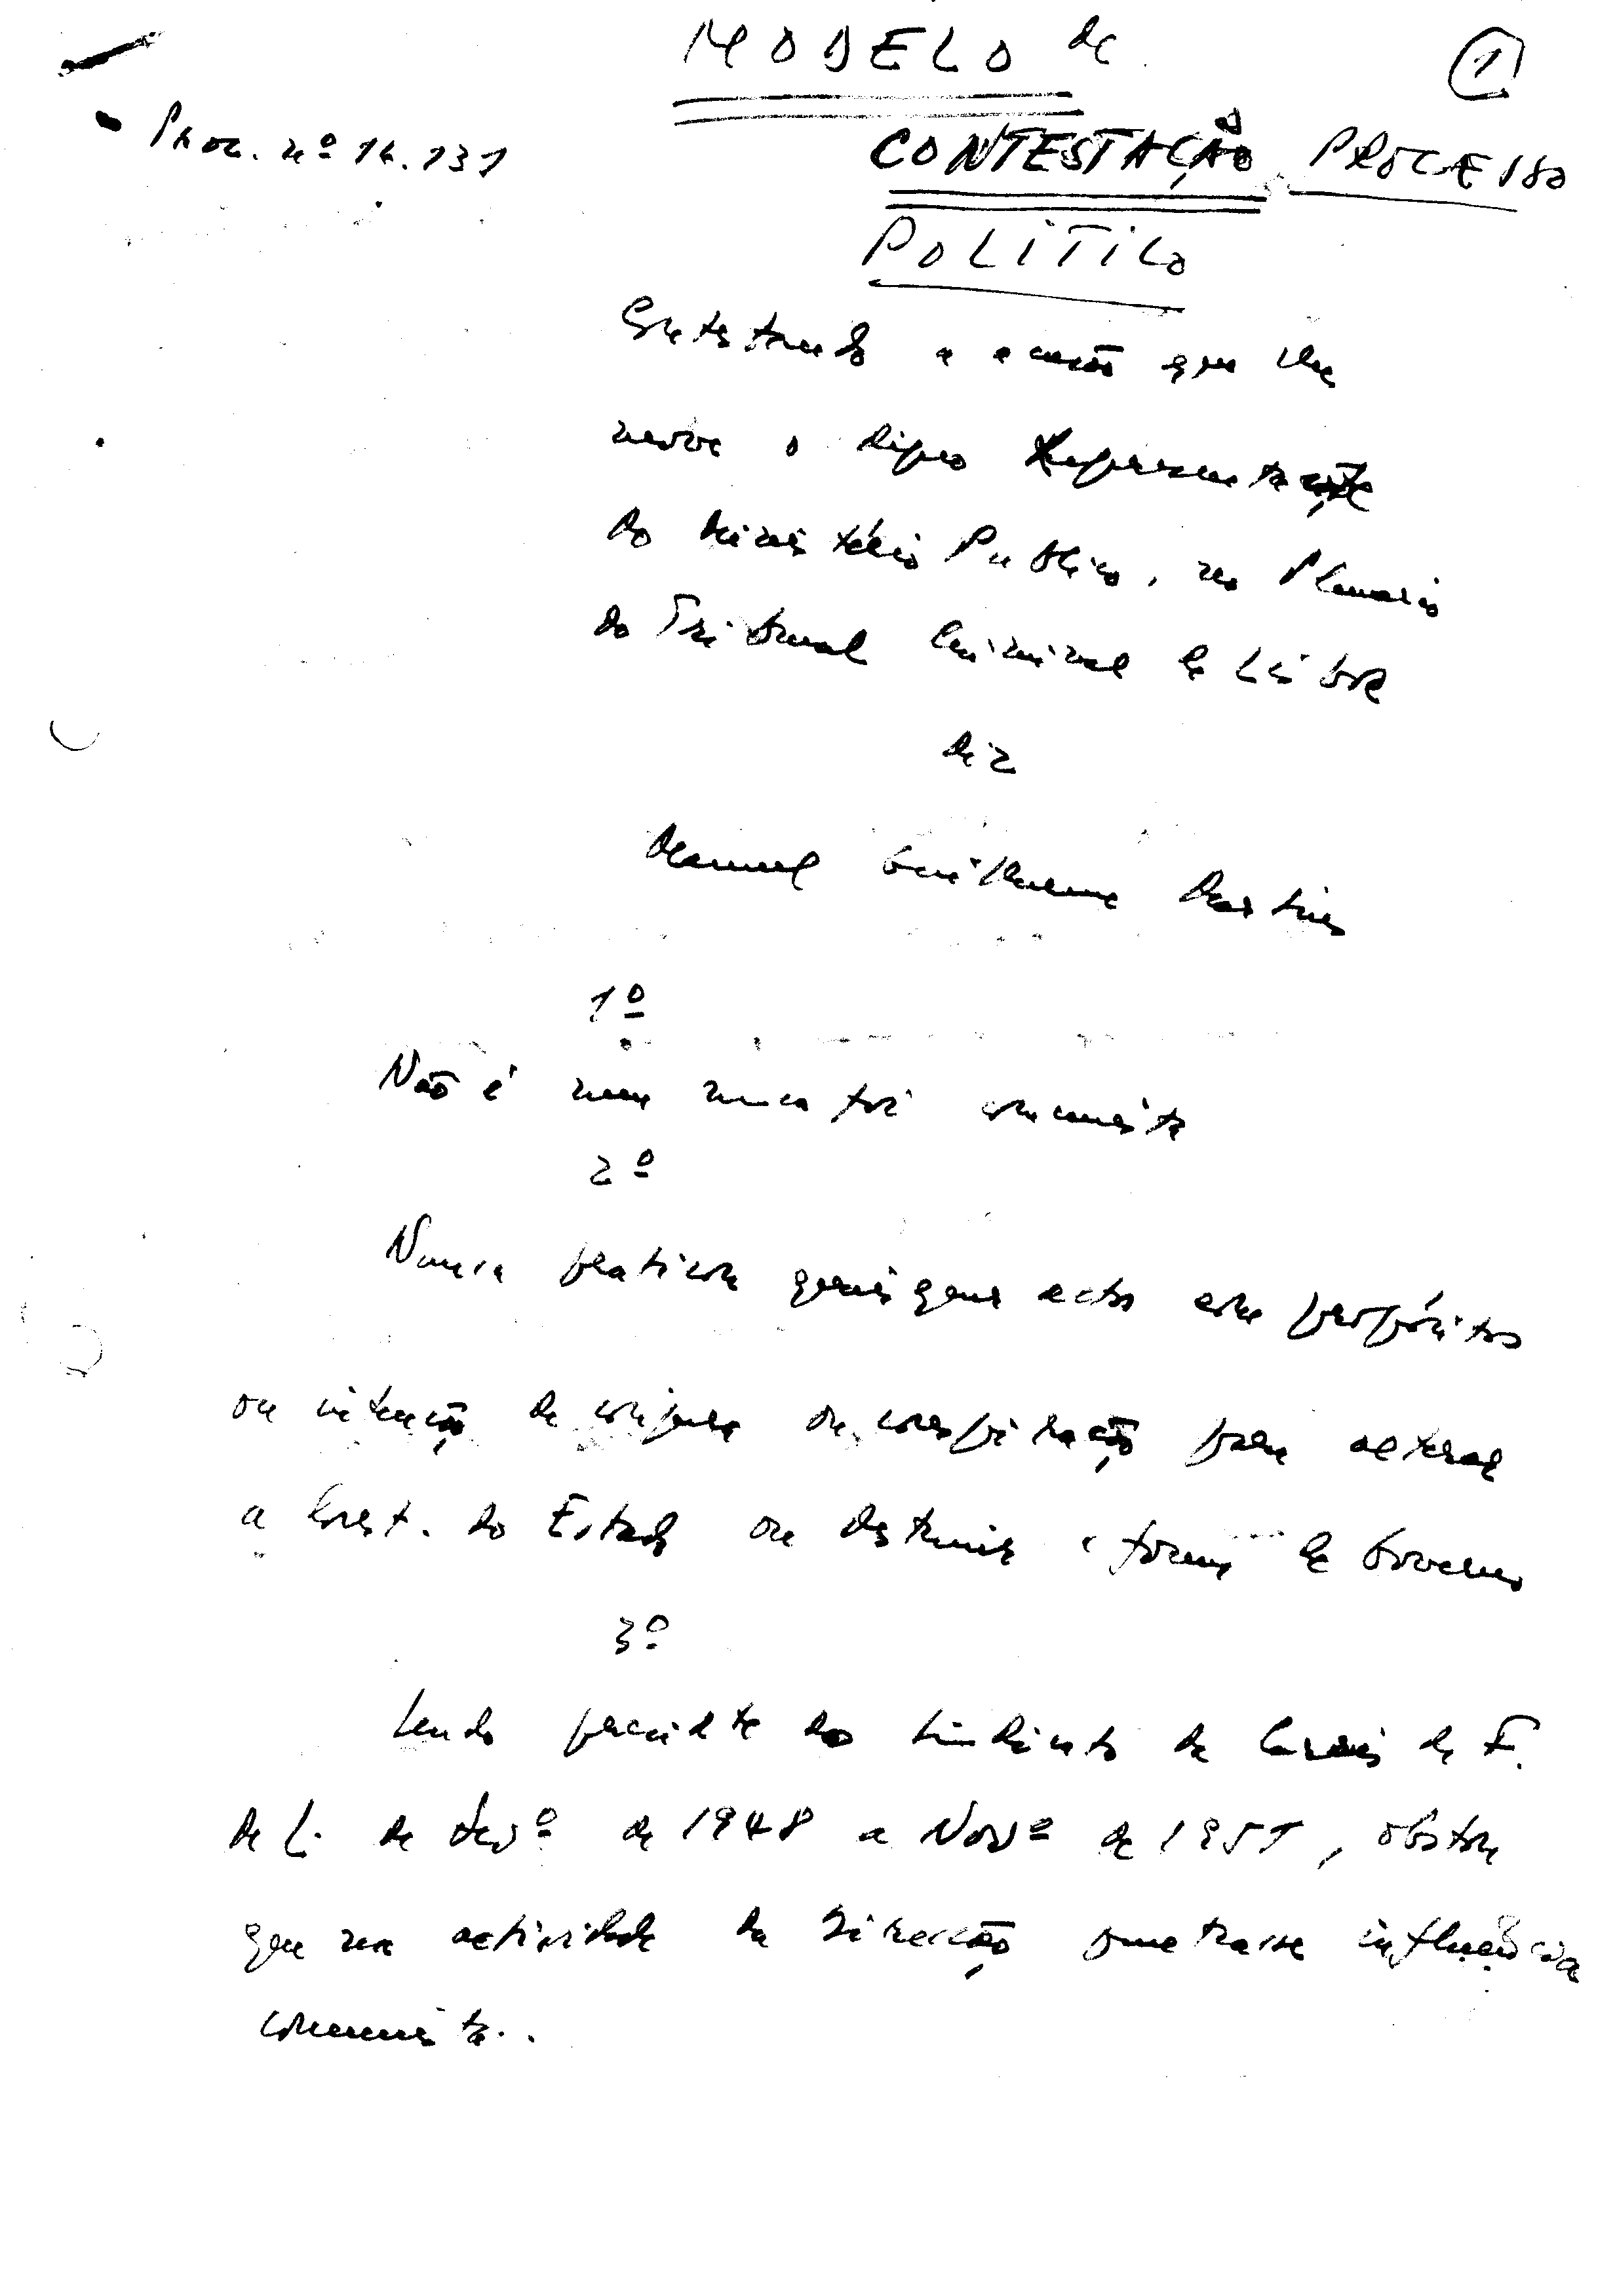 MODELO de
1
Proc. nº 14.131
CONTESTAÇÃO PROCESSO
POLITICO
Contestando a acusação que lhe
move o digno Representante
do Ministério Publico, no Plenario
do Tribunal Criminal de Lisboa
diz
Manuel Guilherme Martins
1º
Não é nem nunca foi comunista
2º
Nunca praticou quaisquer actos com propósitos
ou intenção de conjura ou conspiração para alterar
a Const. do Estado ou destruir a forma de Governo
3º
Sendo presidente do Sindicato de de F.
de L. de de 1948 a Novº de 1951, obstou
que na actividade da Direcção penetrasse influência
comunista.